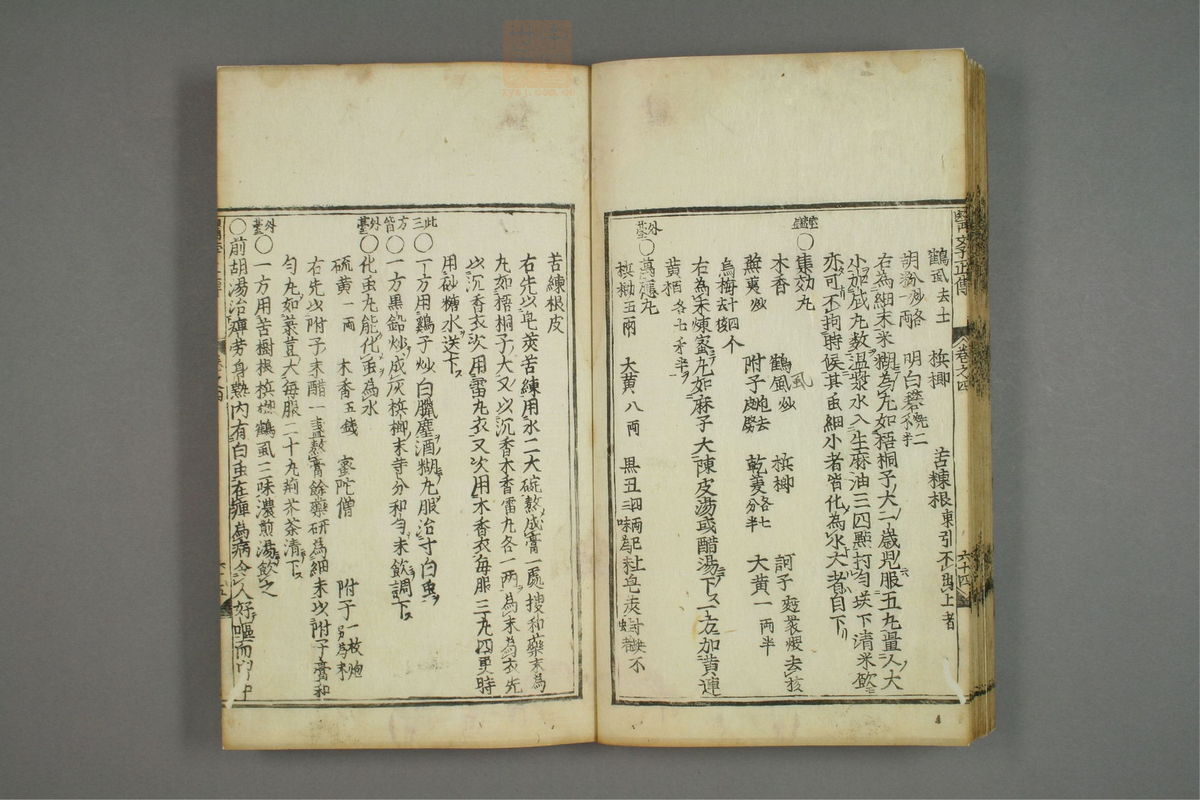 醫學正傳 卷之四 六十四
鶴虱去土 檳榔 苦楝根東引不出土者
胡粉炒各一兩 明白礬
右為細末米糊為丸如梧桐子大一二歲兒服五丸量人大
小加減丸数温漿水入生麻油三四點打匀送下清米飲
亦可不拘時候其虫細小者皆化為水大者自下
○集効丸
木香 鶴虱炒 檳榔 訶子麪裹煨去核
蕪荑炒 附子炮去 乾姜各七 大黄一兩半
烏梅十四个去核
右為末煉蜜丸如麻子大陳皮湯或醋湯下一方加黄連
黄栢各七
外䑓○萬應丸
檳榔五兩 大黄八兩 黒丑四兩
苦練根皮
右先以皂莢苦練用水二大碗熬成膏一處搜和藥末為
丸如梧桐子大又以沉香木香雷丸各一兩為末為衣先
以沉香衣次用雷丸衣又次用木香衣每服三丸四更時
用砂糖水送下
此三方皆外䑓
○一方用鷄子炒白臘塵酒糊丸服治寸白虫
○一方黒鉛炒成灰檳榔末等分和匀米飲調下
○化虫丸能化虫為水
硫黄一兩 木香五錢 蜜陀僧 附子一枚炮別為末
右先以附子末醋一盞熬膏餘藥研為細末以附子膏和
匀丸如菉荳大每服二十丸荊芥茶清下
外䑓○一方用苦樹根檳榔鶴虱三味濃煎湯飲之
○前胡湯治痺劳身熱内有白虫在痺為病令人好嘔而